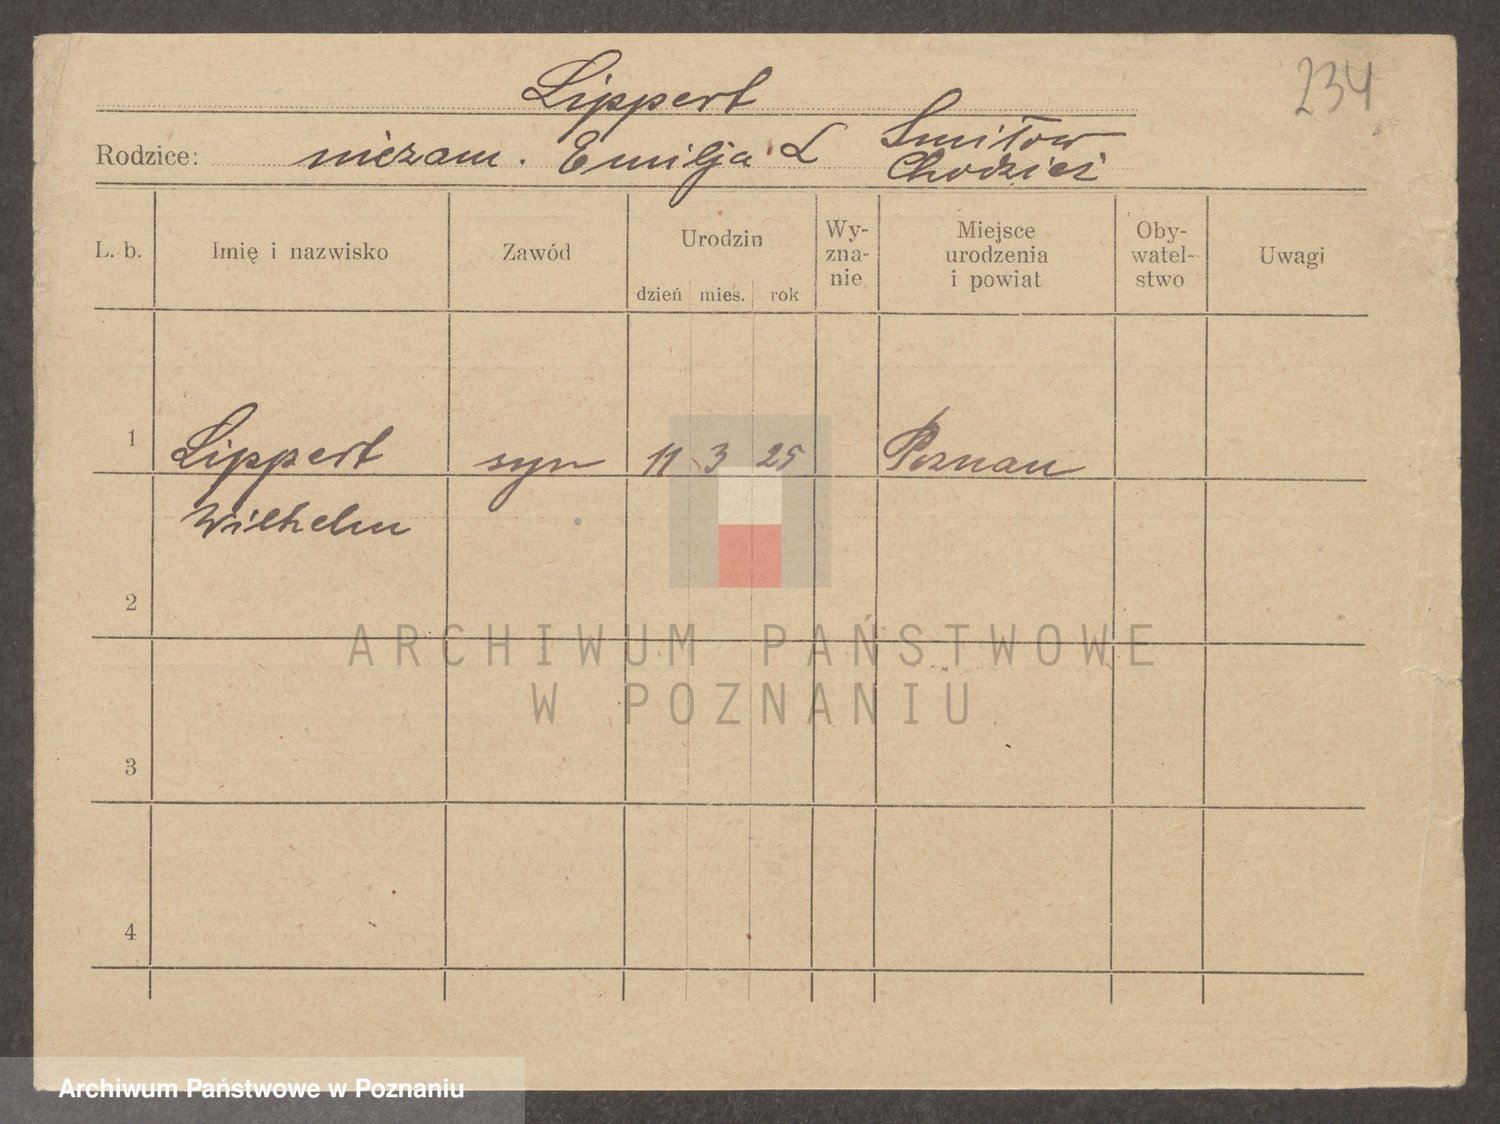 234
Lippert
Rodzice: niezam. Emilja L Smiłow
Chodzież
L. b. Imię i nazwisko Zawód Urodzin Wy-
zna-
nie Miejsce
urodzenia
i powiat Oby-
watel-
stwo Uwagi
dzień mies. rok
1 Lippert syn 11 3 25 Poznan
Wilhelm
2
ARCHIWUM PAŃSTWOWE
W POZNANIU
3
4
Archiwum Państwowe w Poznaniu